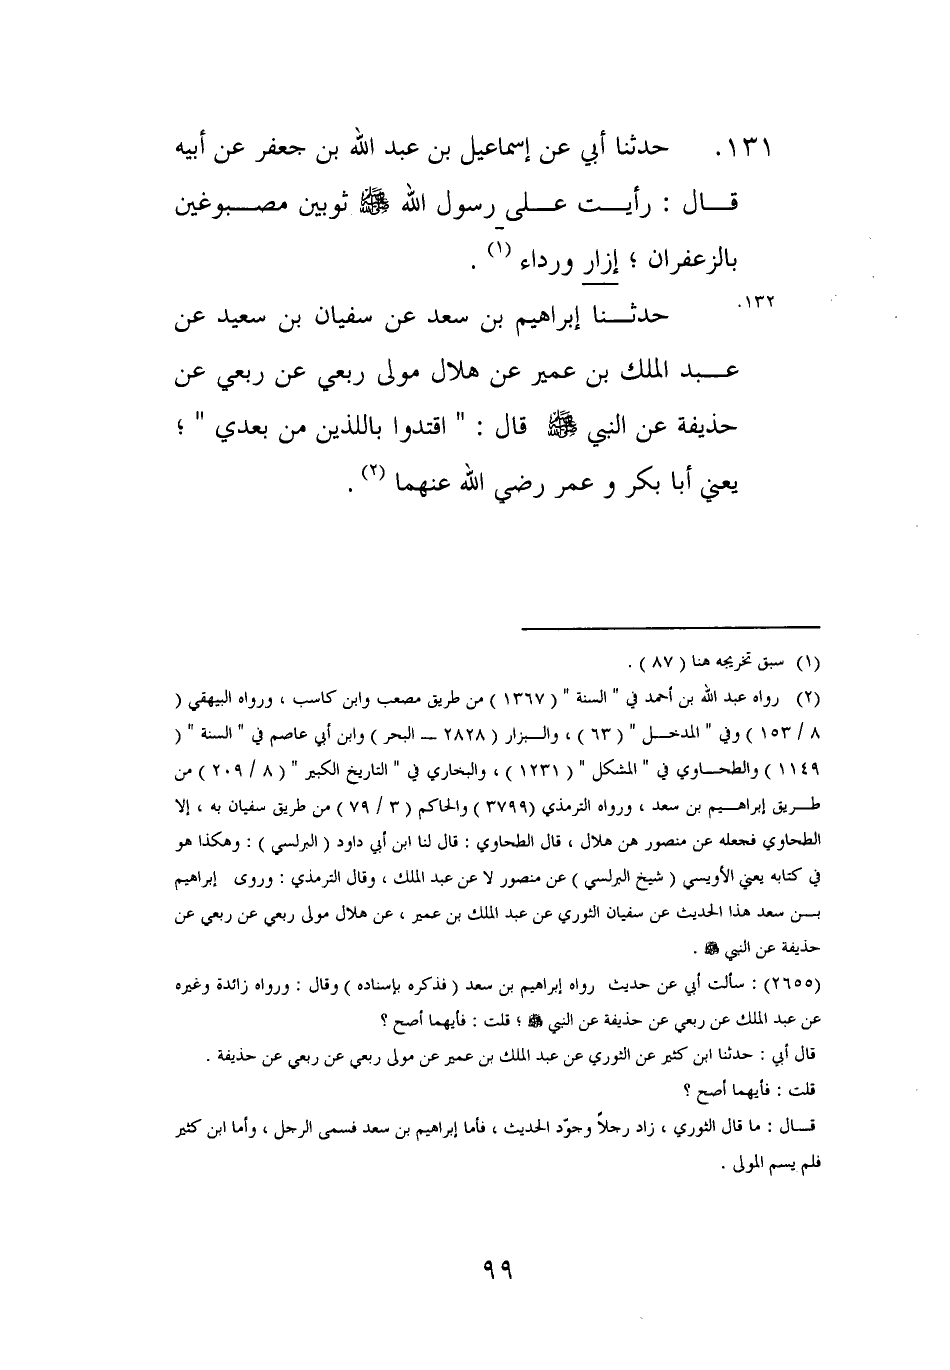 ١٣١. حدثنا أبي عن إسماعيل بن عبد الله بن جعفر عن أبيه
قال : رأيت على رسول الله ﷺ ثوبين مصبوغين
بالزعفران ؛ إزار ورداء (١) .
١٣٢. حدثنا إبراهيم بن سعد عن سفيان بن سعيد عن
عبد الملك بن عمير عن هلال مولى ربعي عن ربعي عن
حذيفة عن النبي ﷺ قال : " اقتدوا باللذين من بعدي " ؛
يعني أبا بكر و عمر رضي الله عنهما (٢) .
(١) سبق تخريجه هنا ( ٨٧ ) .
(٢) رواه عبد الله بن أحمد في " السنة " ( ١٣٦٧ ) من طريق مصعب وابن كاسب ، ورواه البيهقي (
٨ / ١٥٣ ) وفي " المدخل " ( ٦٣ ) ، والبزار ( ٢٨٢٨ – البحر ) وابن أبي عاصم في " السنة " (
١١٤٩ ) والطحاوي في " المشكل " ( ١٢٣١ ) ، والبخاري في " التاريخ الكبير " ( ٨ / ٢٠٩ ) من
طريق إبراهيم بن سعد ، ورواه الترمذي (٣٧٩٩ ) والحاكم ( ٣ / ٧٩ ) من طريق سفيان به ، إلا
الطحاوي فجعله عن منصور هن هلال ، قال الطحاوي : قال لنا ابن أبي داود ( البرلسي ) : وهكذا هو
في كتابه يعني الأويسي ( شيخ البرلسي ) عن منصور لا عن عبد الملك ، وقال الترمذي : وروى إبراهيم
بن سعد هذا الحديث عن سفيان الثوري عن عبد الملك بن عمير ، عن هلال مولى ربعي عن ربعي عن
حذيفة عن النبي ﷺ .
(٢٦٥٥) : سألت أبي عن حديث رواه إبراهيم بن سعد ( فذكره بإسناده ) وقال : ورواه زائدة وغيره
عن عبد الملك عن ربعي عن حذيفة عن النبي ﷺ ؛ قلت : فأيهما أصح ؟
قال أبي : حدثنا ابن كثير عن الثوري عن عبد الملك بن عمير عن مولى ربعي عن ربعي عن حذيفة .
قلت : فأيهما أصح ؟
قال : ما قال الثوري ، زاد رجلاً وجوّد الحديث ، فأما إبراهيم بن سعد فسمى الرجل ، وأما ابن كثير
فلم يسم المولى .
٩٩